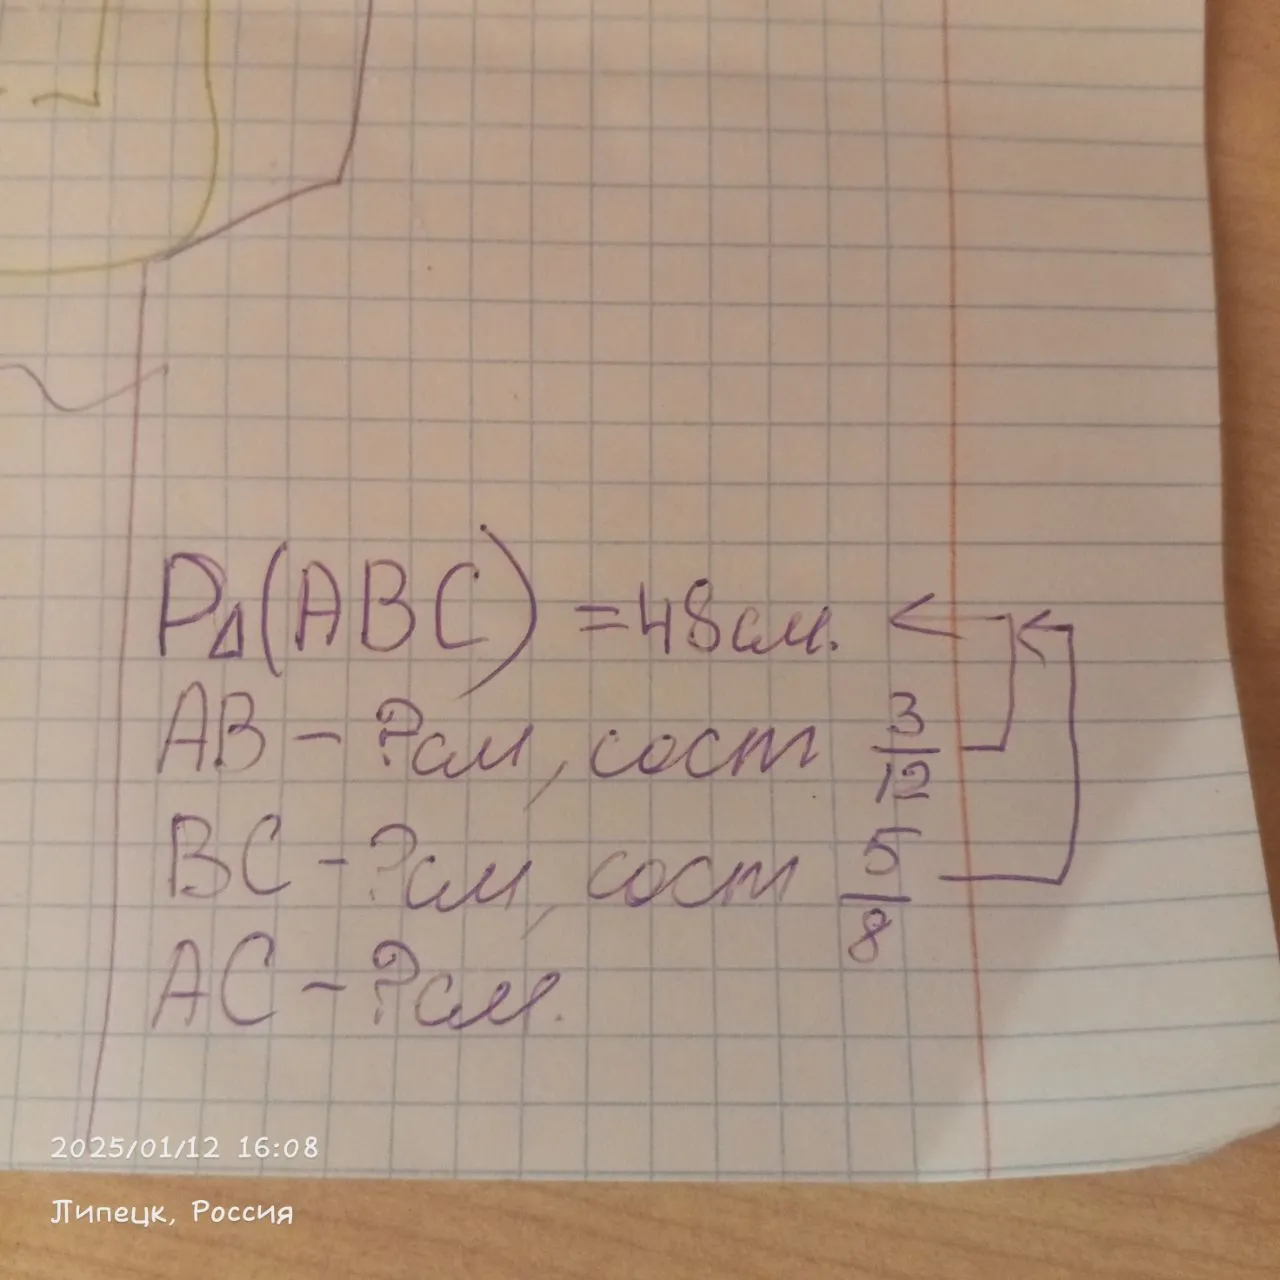 P△(ABC) = 48 см.
AB - ? см, сост 3/12
BC - ? см, сост 5/8
AC - ? см.
2025/01/12 16:08
Липецк, Россия